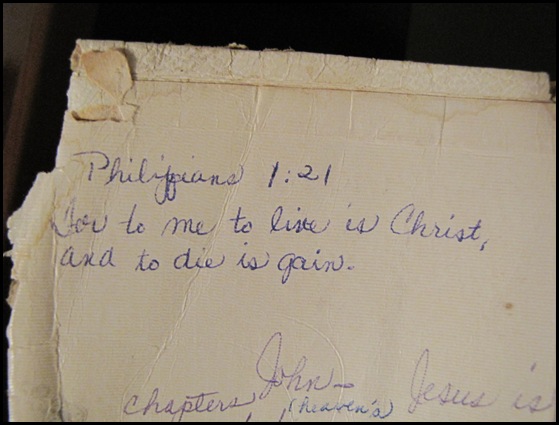 Philippians 1:21
For to me to live is Christ,
and to die is gain.
John – Jesus is
chapters (heaven's)